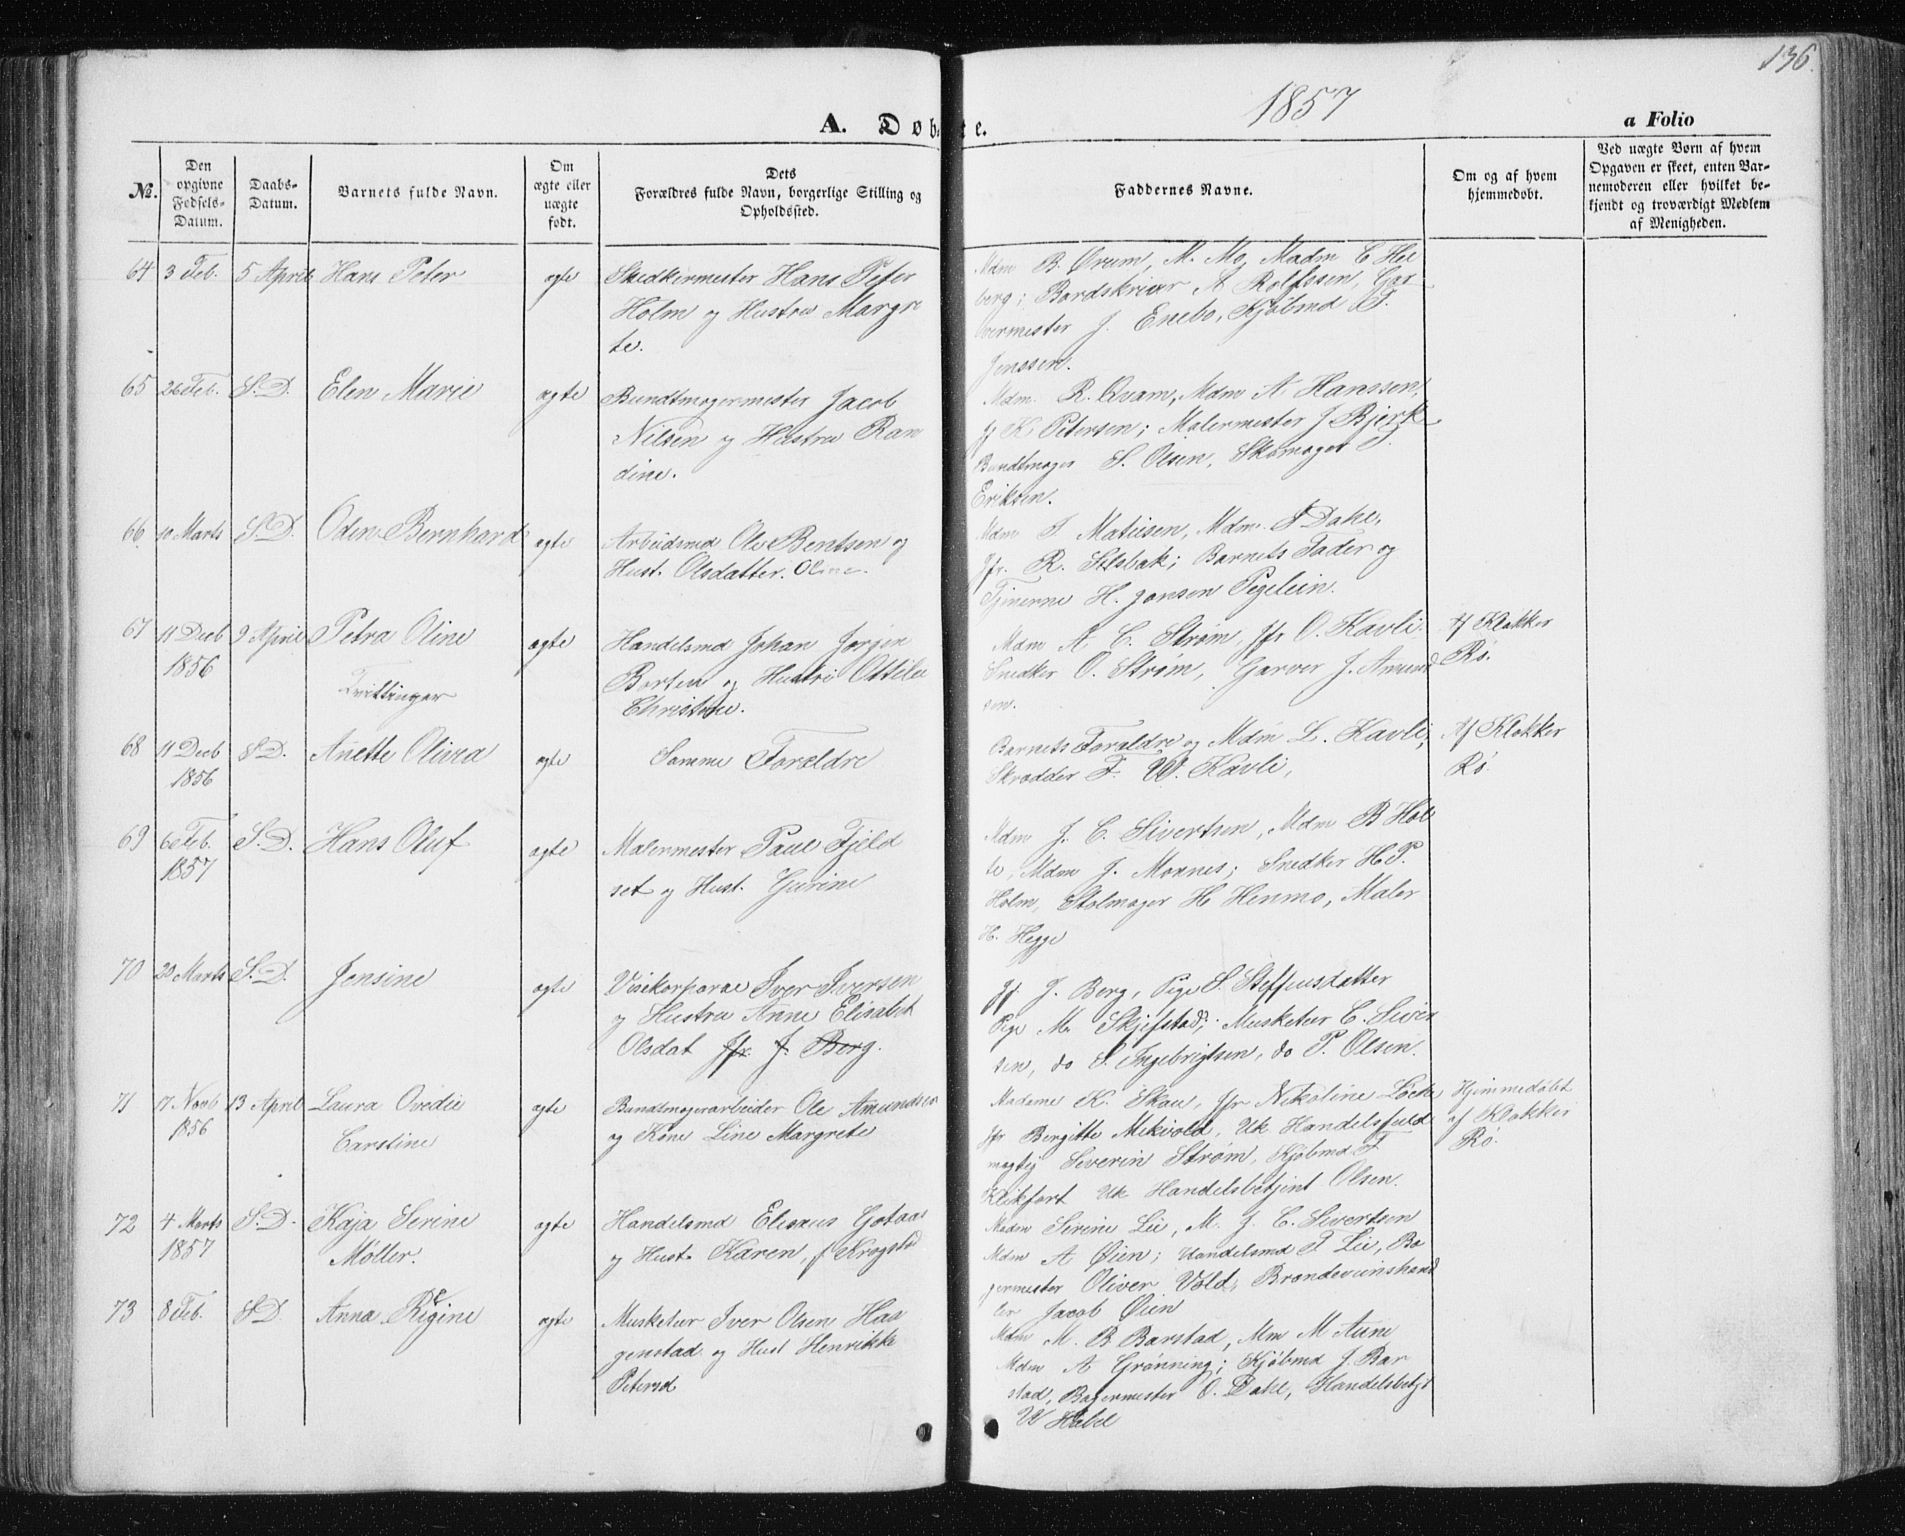 136.
1857
A. Døbte.
a Folio
№.
Den opgivne Fødsels-Datum.
Daabs-Datum.
Barnets fulde Navn.
Om ægte eller uægte født.
Dets Forældres fulde Navn, borgerlige Stilling og Opholdssted.
Faddernes Navne.
Om og af hvem hjemmedøbt.
Ved uægte Børn af hvem Opgaven er skeet, enten Barnemoderen eller hvilket bekjendt og troværdigt Medlem af Menigheden.
64 3 Feb. 5 April Hans Peter ægte
Snedkermester Hans Peter
Holm og Hustru Margre
te.
Mdm B. Ørum, M. Mo, Madm C Hel
berg; Bordskriver A Rolfssen, Gar
vermester J. Enebo, Kjøbmd T.
Jenssen.
65 26 Feb. S.D. Elen Marie ægte
Bundtmagermester Jacob
Nilsen og Hustru Ran
dine.
Mdm. R. Qvam, Mdm A Hanssen,
Jf K Petersen; Malermester J Bjerk
Bundtmager S. Olsen, Skomager T.
Eriksen.
66 10 Marts S.D. Oden Bernhard ægte
Arbeidsmd Ole Bentsen og
Hust. Olsdatter. Oline.
Mdm T Matisen, Mdm. P Dahl,
Jfr. R. Selsbak; Barnets Fader og
Tjenerne H. Jonsen Pegelein.
67 11 Decb 9 April Petra Oline ægte
1856
Tvillinger
Handelsmd Johan Jørgen
Borten og Hustru Ottilie
Christine.
Mdm A C. Strøm, Jfr O. Kavli.
Snedker O. Strøm, Garver J. Amund
sen.
Af Klokker
Rø.
68 11 Decb S.D. Anette Olivia ægte
1856
Samme Forældre
Barnets Forældre og Mdm L. Kavli,
Skrædder F. W. Kavli,
Af Klokker
Rø.
69 6 Feb. S.D. Hans Oluf ægte
1857
Malermester Paul Fjeld
set og Hust. Gurine
Mdm J. C. Sivertsen, Mdm B Hol
te, Mdm J. Moxnes; Snedker H. P.
Holm, Stolmager H Henmo, Maler
H. Hegge
70 20 Marts S.D. Jensine ægte
Vicekorporal Iver Iversen
og Hustru Anne Elisabet
Olsdat Jfr. J. Berg.
Jf. J. Berg, Pige S. Steffensdatter
Pige M. Skjefstad; Musketeer C. Siver
sen, do S. Ingebrigtsen, do P. Olsen.
71 17 Novb 13 April Laura Ovedie ægte
1856
Carstine
Bundtmagerarbeider Ole Amundsen
og Kone Line Margrete
Madame K. Skau, Jfr Nikoline Løcke
Jfr Bergitte Mikvold, Uk. Handelsfuld
mægtig Severin Strøm, Kjøbmd F
Klikfort Uk Handelsbetjent Olsen.
Hjemmedøbt
af Klokker
Rø.
72 4 Marts S.D. Kaja Serine ægte
1857
Møller.
Handelsmd Elisæus Gotaas
og Hust. Karen, f Krogstad
Madm Serine Lie, M. J. C. Sivertsen
Mdm A Øien; Handelsmd T Lie, Ba
germester Oliver Vold, Brændeviinshand
ler Jacob Øien
73 8 Feb. S.D. Anna Regine ægte
Musketeer Iver Olsen Haa
genstad og Hust Henrikke
Petersd
Mdm M. B Barstad, Mm M Aune
Mdm A Grønning; Kjøbmd J. Bar
stad, Bagermester O. Dahl, Handelsbetjt
W Habel